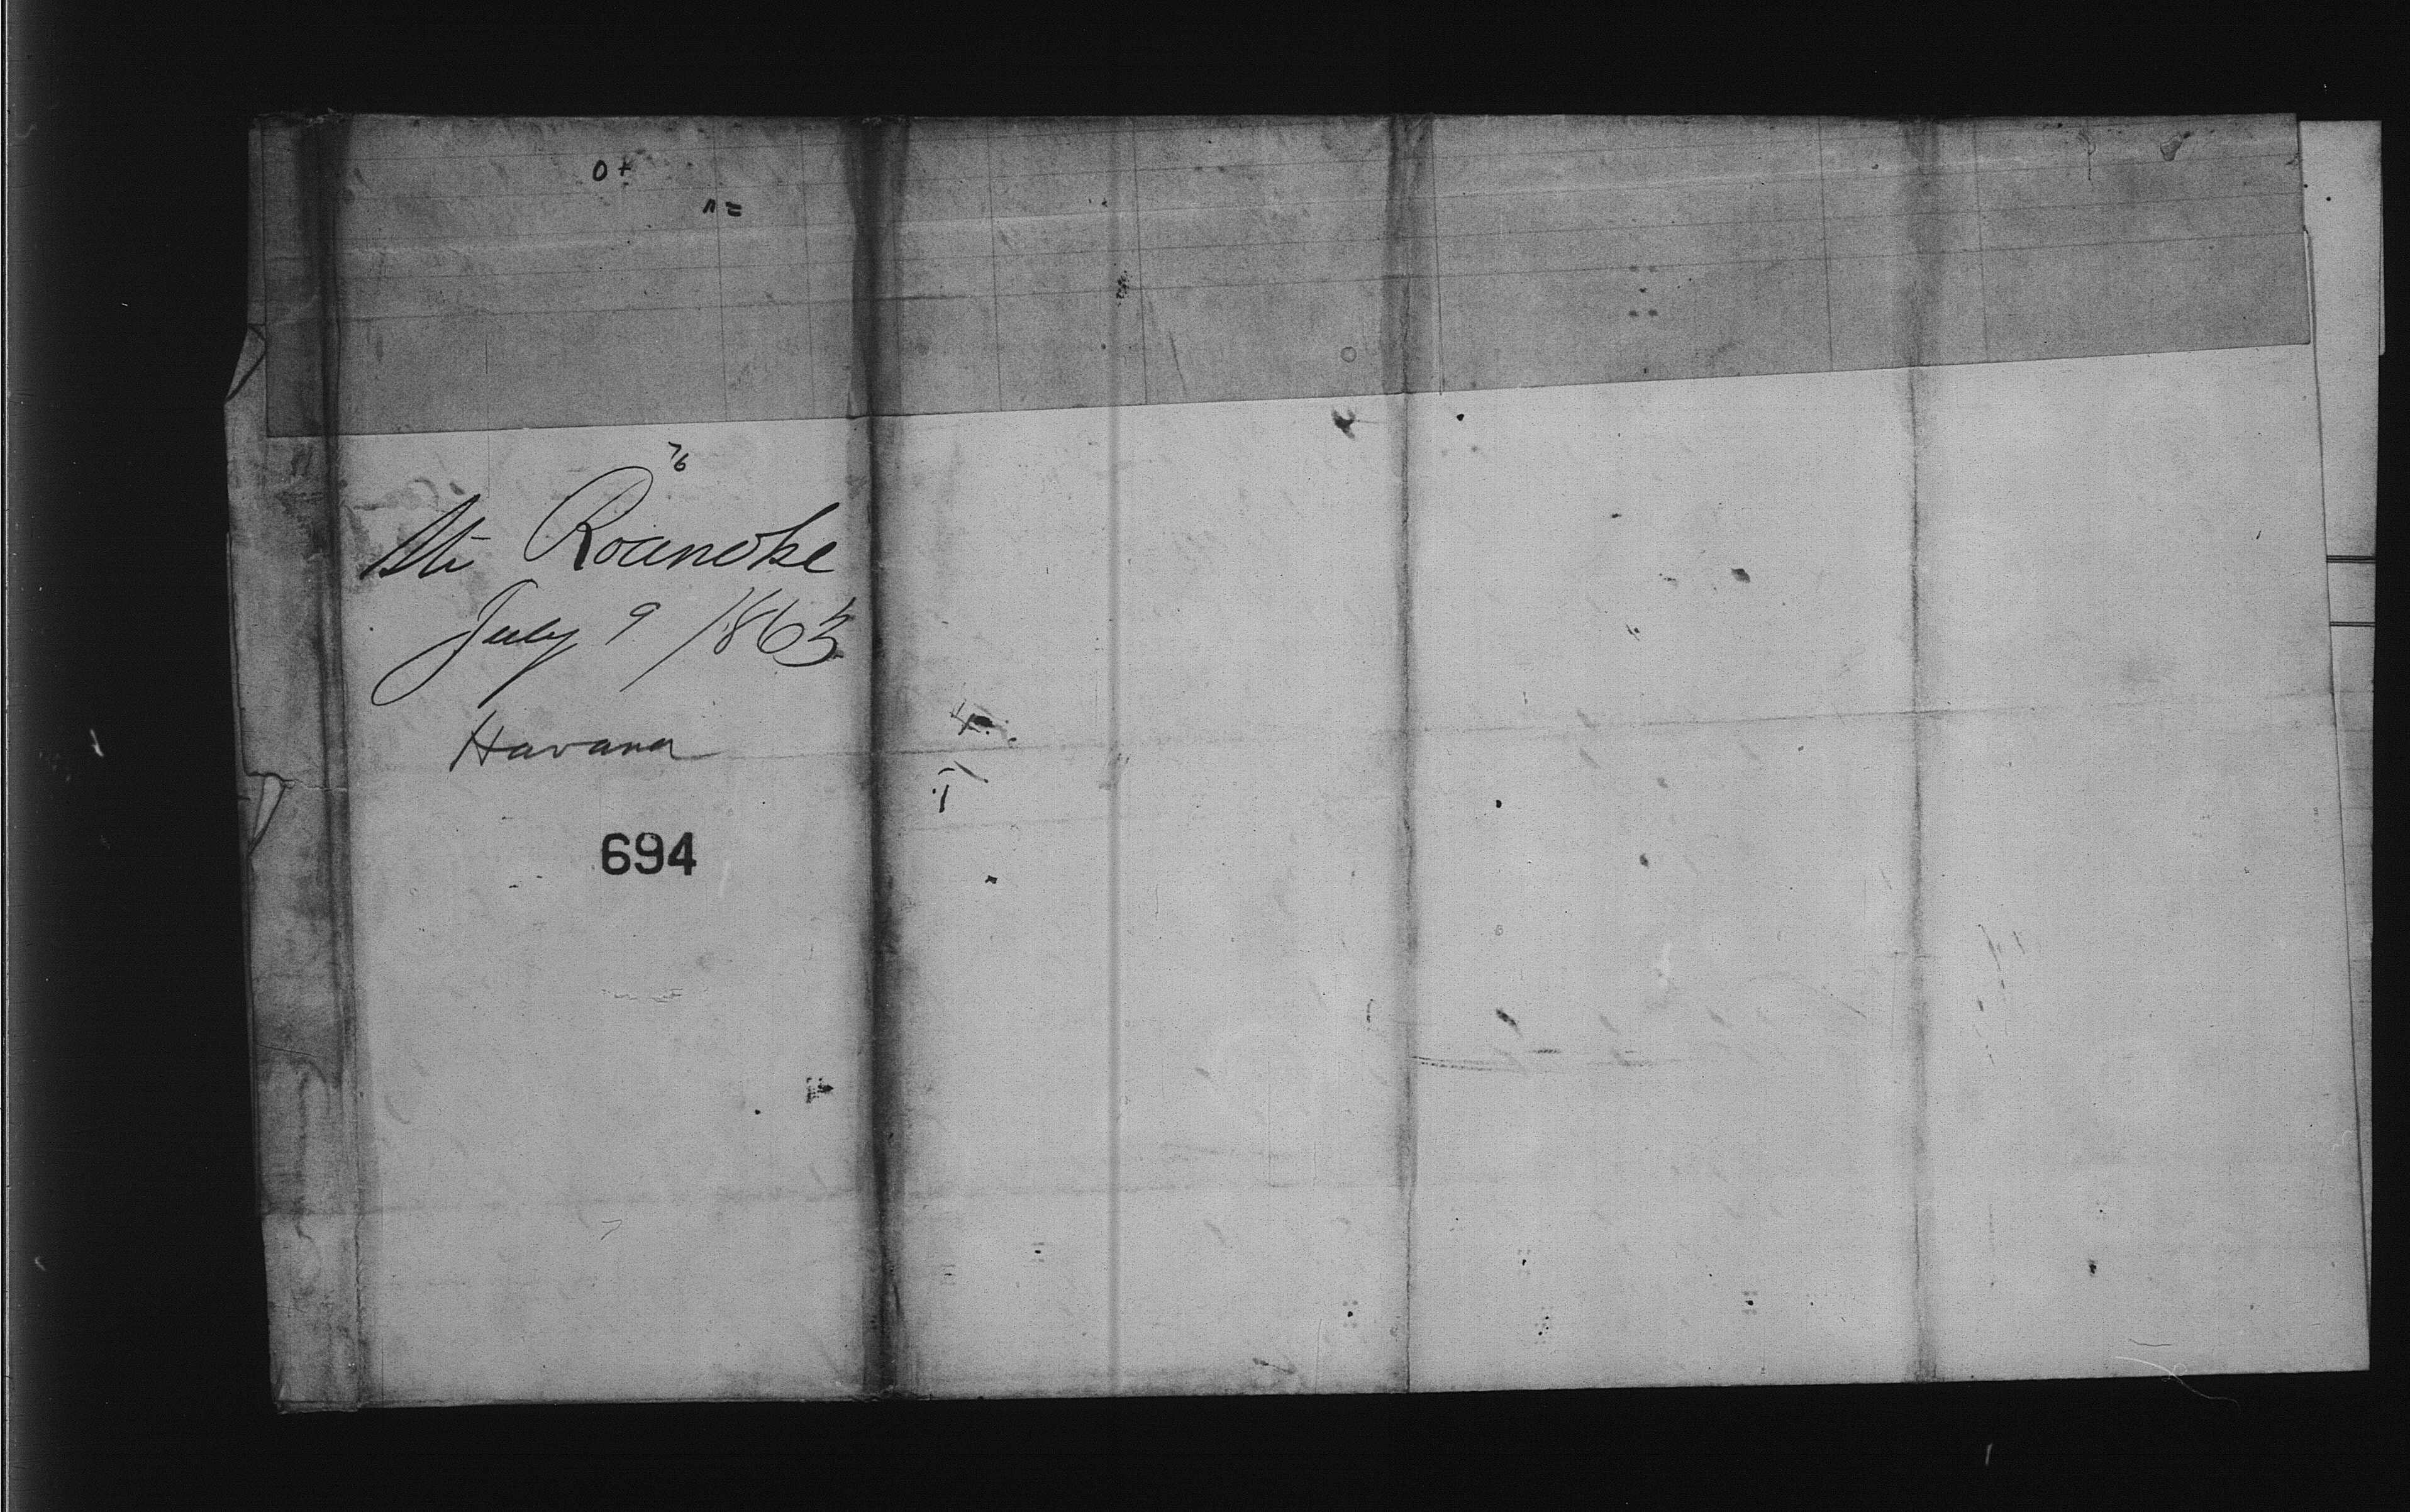 76
Str Roanoke
July 9 /1863
Havana
694